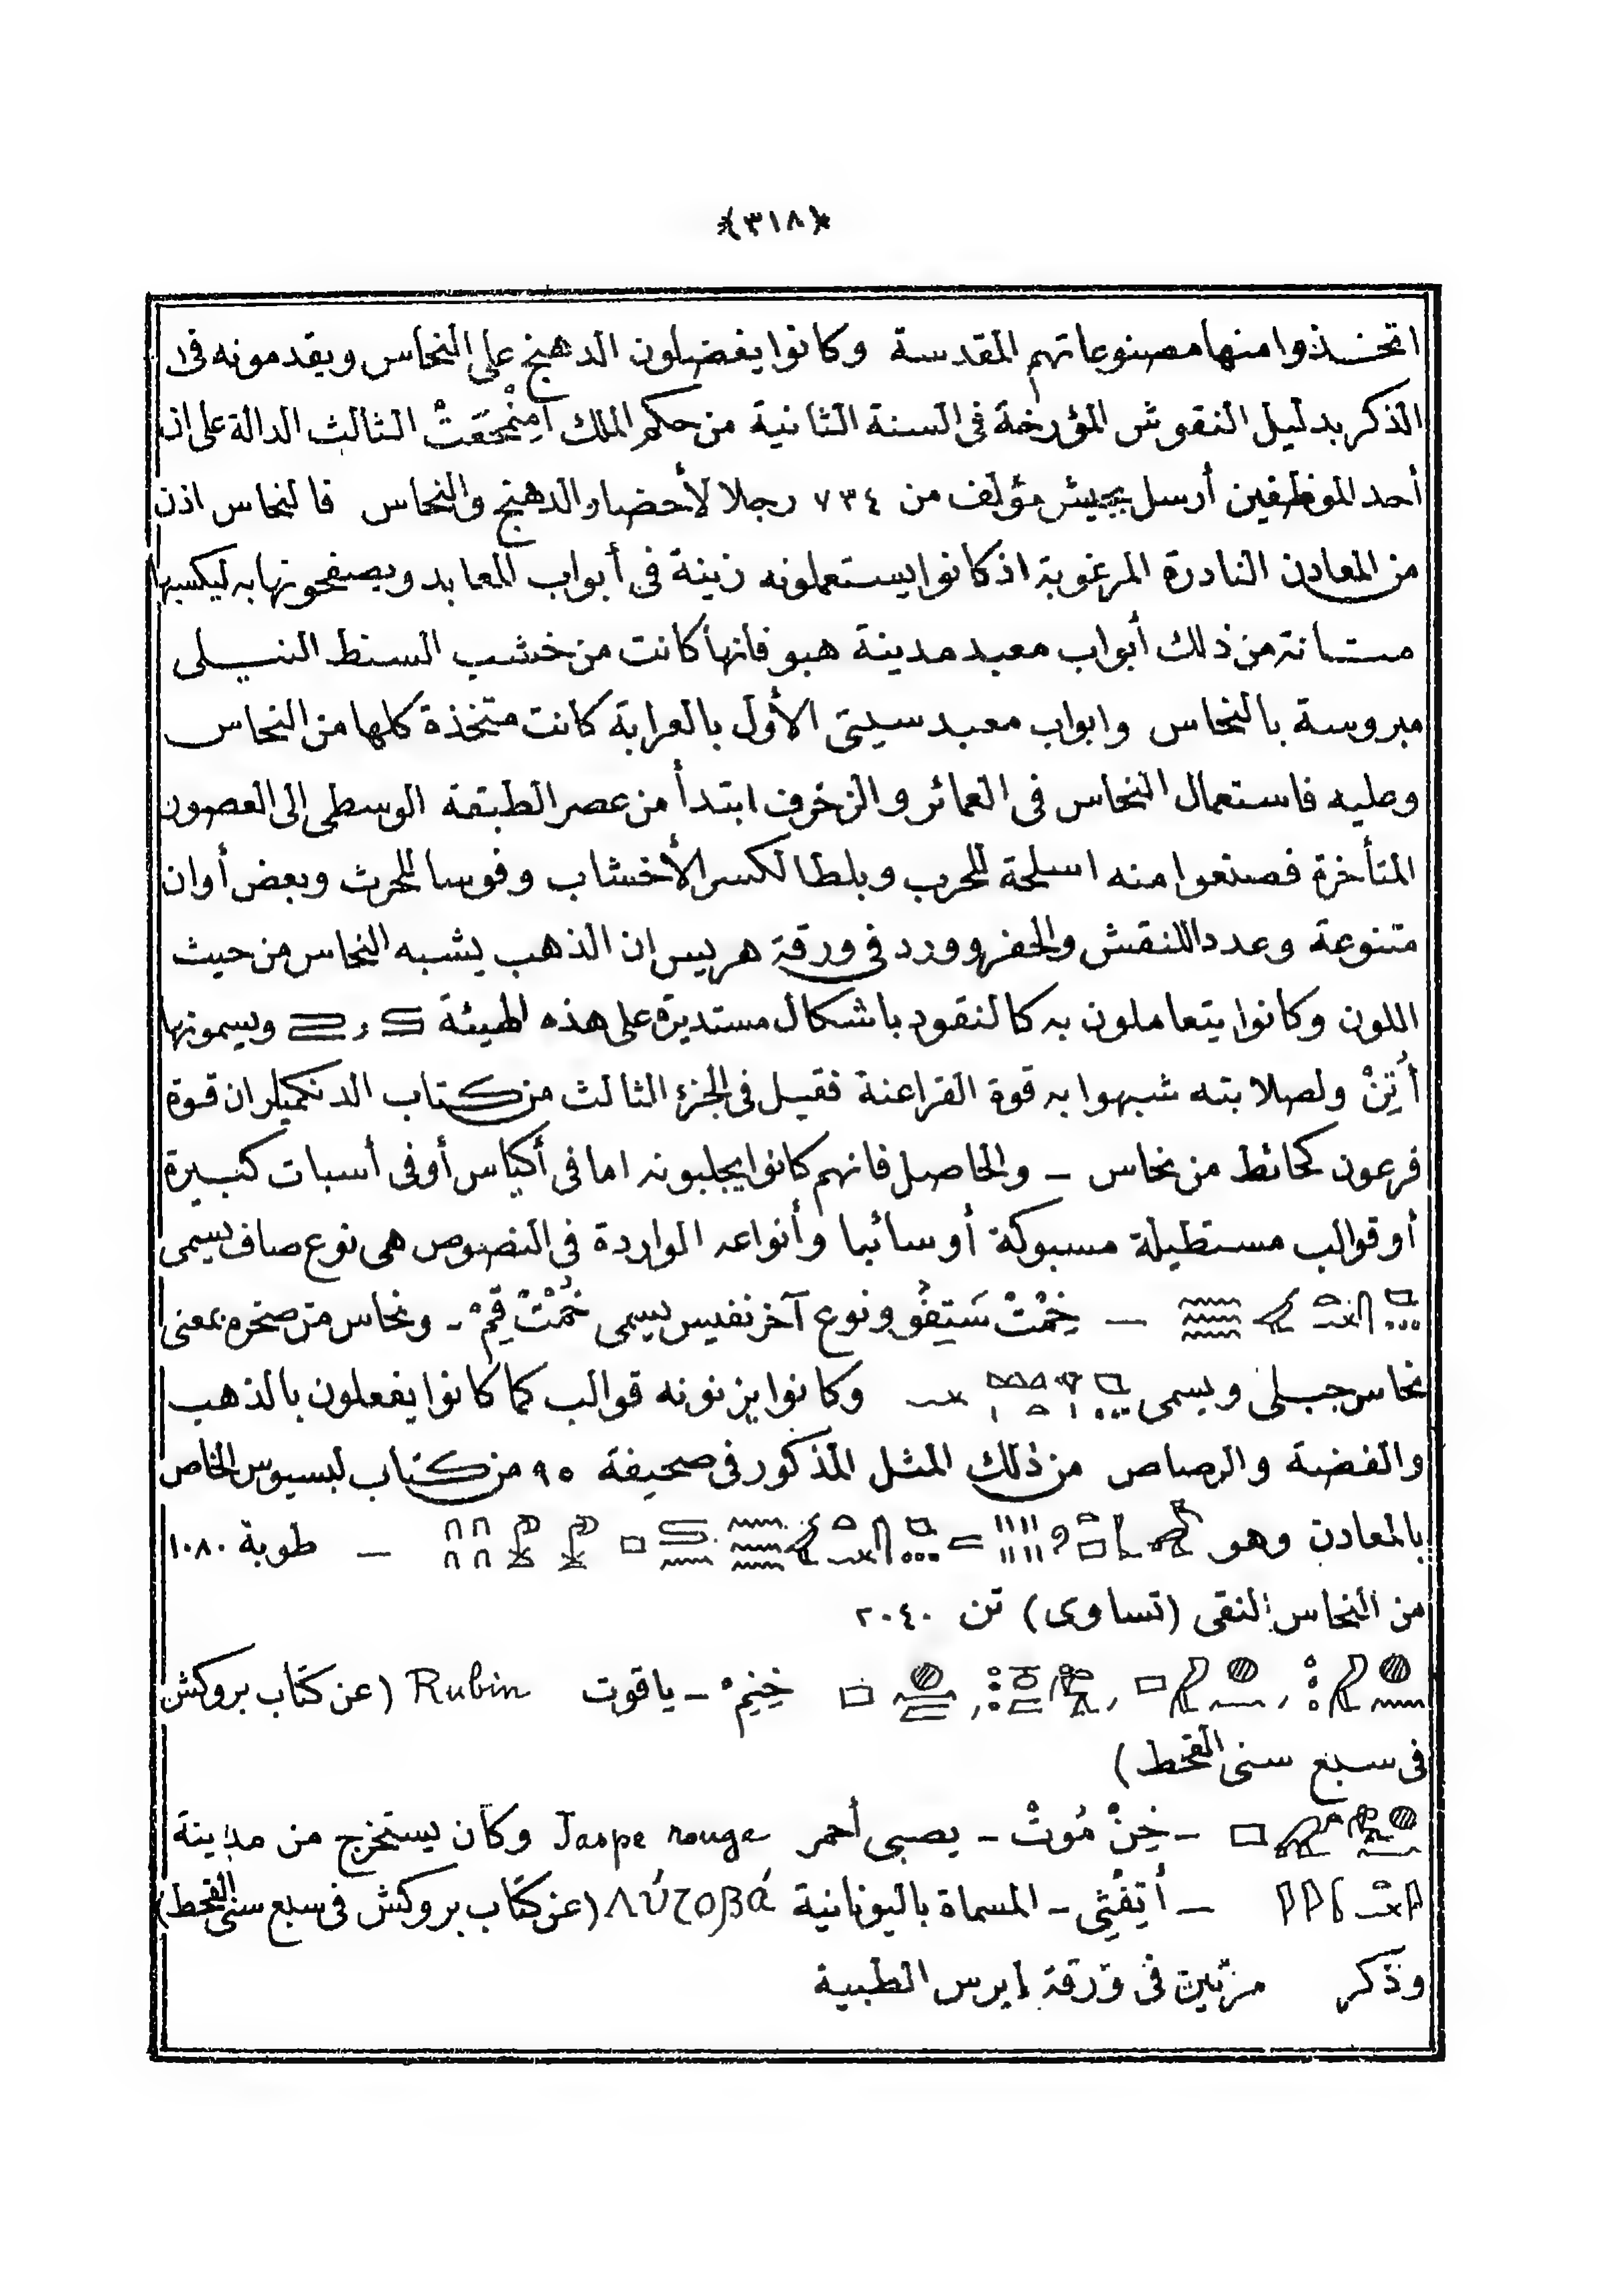 ﴿٣١٨﴾
اتخذوا منها مصنوعاتهم المقدسة وكانوا يفضلون الدهنج على النحاس ويقدمونه فى
الذكر بدليل النقوش المؤرخة فى السنة الثانية من حكم الملك أمنمحعت الثالث الدالة على ان
أحد الموظفين أرسل بجيش مؤلف من ٧٣٤ رجلا لأحضار الدهنج والنحاس فالنحاس اذن
من المعادن النادرة المرغوبة اذ كانوا يستعملونه زينة فى أبواب المعابد ويصفحونها به ليكسبها
متانة من ذلك أبواب معبد مدينة هبو فانها كانت من خشب السنط النيلى
مبروسة بالنحاس وابواب معبد سيتى الأول بالعرابة كانت متخذة كلها من النحاس
وعليه فاستعمال النحاس فى العمائر والزخرف ابتدأ من عصر الطبقة الوسطى الى العصور
المتأخرة فصنعوا منه اسلحة للحرب وبلطا لكسر الأخشاب وفوسا للحرث وبعض أوان
متنوعة وعددا للنقش والحفر وورد فى ورقة هريس ان الذهب يشبه النحاس من حيث
اللون وكانوا يتعاملون به كالنقود باشكال مستديرة على هذه الهيئة و ويسمونها
أُتِنْ ولصلابته شبهوا به قوة الفراعنة فقيل فى الجزء الثالث من كتاب الدنكميلر ان قوة
فرعون كحائط من نحاس ـ والحاصل فانهم كانوا يجلبونه اما فى أكياس أو فى أسبات كبيرة
أو قوالب مستطيلة مسبوكة أو سائبا وأنواعه الواردة فى النصوص هى نوع صاف يسمى
ـ خِمْتْ سَتِفُو ونوع آخر نفيس يسمى خُمْتْ قِمْ ـ ونحاس من صخره بمعنى
نحاس جبلى ويسمى وكانوا يزنونه قوالب كما كانوا يفعلون بالذهب
والفضة والرصاص من ذلك المثل المذكور فى صحيفة ٩٥ من كتاب لبسيوس الخاص
بالمعادن وهو ـ طوبة ١٠٨٠
من النحاس النقى (تساوى) تن ٢٠٤٠
خِنِمْ ـ ياقوت Rubin (عن كتاب بروكش
فى سبع سنى القحط)
ـ خِنْ مُوتْ ـ يصبى أحمر Jaspe rouge وكان يستخرج من مدينة
ـ أُتِفْتِى ـ المسماة باليونانية (عن كتاب بروكش فى سبع سنى القحط)
وذكر مرتين فى ورقة ابرس الطبية